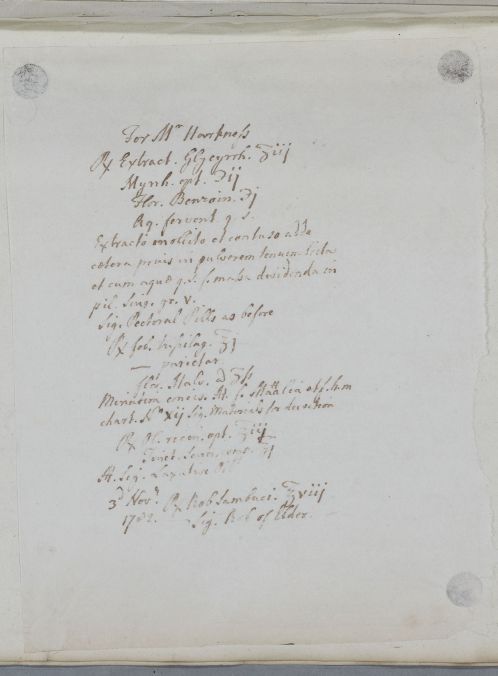 For Mr Harkness
℞ Extract. Glycyrrh. ʒiij
Myrrh. opt. ʒij
Flor. Benzoin. ℈j
Aq. fervent. q. s.
Extracto emollito et contuso adde
cetera prius in pulverem tenuem trita
et cum aquæ q.s. f. massa dividenda in
pil. sing. gr. v.
Sig. Pectoral Pills as before
℞ fol. Tussilag. ℥j
— parietar
flor. ʒß
Minutim concis. M. f. et f. l.
chart. No xij Sig. Materials for decoction
℞ Ol. ricin. opt. ℥iij
Tinct. Senn. ℥j
M. Sig. Laxative
3d Novr. ℞ Rob Sambuci. ℥viij
1782. Sig. Rob of Elder.